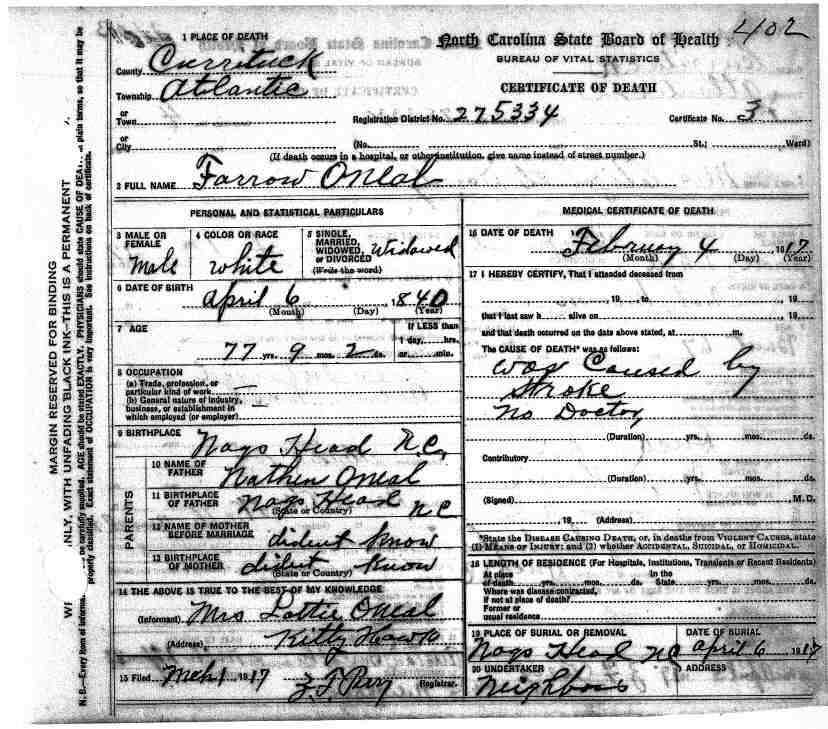 402
North Carolina State Board of Health
BUREAU OF VITAL STATISTICS
CERTIFICATE OF DEATH
1 PLACE OF DEATH
County Currituck
Township Atlantic
or
Town
Registration District No. 275334 Certificate No. 3
or
City (No. St.; Ward)
(If death occurs in a hospital, or other institution, give name instead of street number.)
2 FULL NAME Farrow ONeal
PERSONAL AND STATISTICAL PARTICULARS
3 MALE OR FEMALE Male
4 COLOR OR RACE white
5 SINGLE, MARRIED, WIDOWED, or DIVORCED (Write the word) Widowed
6 DATE OF BIRTH April 6, 1840
(Month) (Day) (Year)
7 AGE 77 yrs. 9 mos. 2 ds.
If LESS than
1 day, hrs.
or min.
8 OCCUPATION
(a) Trade, profession, or
particular kind of work —
(b) General nature of industry,
business, or establishment in
which employed (or employer) —
9 BIRTHPLACE Nags Head N.C.
PARENTS
10 NAME OF FATHER Nathen ONeal
11 BIRTHPLACE OF FATHER Nags Head N C
(State or Country)
12 NAME OF MOTHER BEFORE MARRIAGE dident know
13 BIRTHPLACE OF MOTHER dident know
(State or Country)
14 THE ABOVE IS TRUE TO THE BEST OF MY KNOWLEDGE
(Informant) Mrs Lottie ONeal
(Address) Kitty Hawk
15 Filed Mch 1 1917 Registrar.
MEDICAL CERTIFICATE OF DEATH
16 DATE OF DEATH February 4 1917
(Month) (Day) (Year)
17 I HEREBY CERTIFY, That I attended deceased from
, 19 , to , 19
that I last saw h alive on , 19
and that death occurred on the date above stated, at m.
The CAUSE OF DEATH* was as follows:
was Caused by
Stroke
No Doctor
(Duration) yrs. mos. ds.
Contributory
(Duration) yrs. mos. ds.
(Signed) , M. D.
, 19 , (Address)
*State the DISEASE CAUSING DEATH, or, in deaths from VIOLENT CAUSES, state
(1) MEANS OF INJURY; and (2) whether ACCIDENTAL, SUICIDAL, or HOMICIDAL.
18 LENGTH OF RESIDENCE (For Hospitals, Institutions, Transients or Recent Residents)
At place In the
of death yrs. mos. ds. State yrs. mos. ds.
Where was disease contracted,
if not at place of death?
Former or
usual residence
19 PLACE OF BURIAL OR REMOVAL Nags Head NC
DATE OF BURIAL April 6 1917
20 UNDERTAKER Neighbors
ADDRESS
MARGIN RESERVED FOR BINDING
NLY, WITH UNFADING BLACK INK—THIS IS A PERMANENT
N. B.—Every item of informa be carefully supplied. AGE should be stated EXACTLY. PHYSICIANS should state CAUSE OF DEA plain terms, so that it may be
properly classified. Exact statement of OCCUPATION is very important. See instructions on back of certificate.